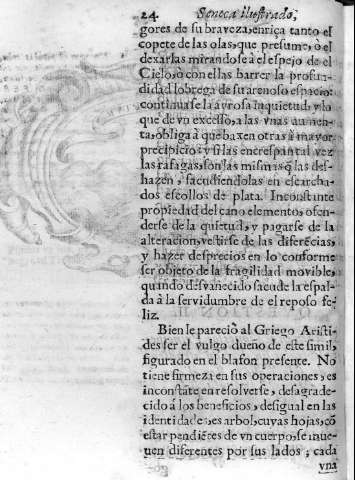 24. Seneca ilustrado,
gores de su braveza, enriça tanto el
copete de las olas, que presume, ò el
dexarlas mirandose à el espejo de el
Cielo, ò con ellas barrer la profun-
didad lobrega de su arenoso espacio:
continuase la ayrosa inquietud, y lo
que de vn excesso, a las vnas aumen-
ta, obliga à que baxen otras à mayor
precipicio: y si las encrespan tal vez
las rafagas, son las mismas q̃ las des-
hazen, sacudiendolas en escarcha-
dos escollos de plata. Inconstante
propiedad del cano elemento, ofen-
derse de la quietud, y pagarse de la
alteracion, vestirse de las diferẽcias,
y hazer desprecios en lo conforme
ser objeto de la fragilidad movible,
quando desvanecido sacude la espal-
da à la servidumbre de el reposo fe-
liz.
Bien le pareciò al Griego Aristi-
des ser el vulgo dueño de este simil,
figurado en el blason presente. No
tiene firmeza en sus operaciones, es
inconstãte en resolverse, desagrade-
cido à los beneficios, desigual en las
identidades; es arbol, cuyas hojas, cõ
estar pendiẽtes de vn cuerpo, se mue-
uen diferentes por sus lados; cada
vna